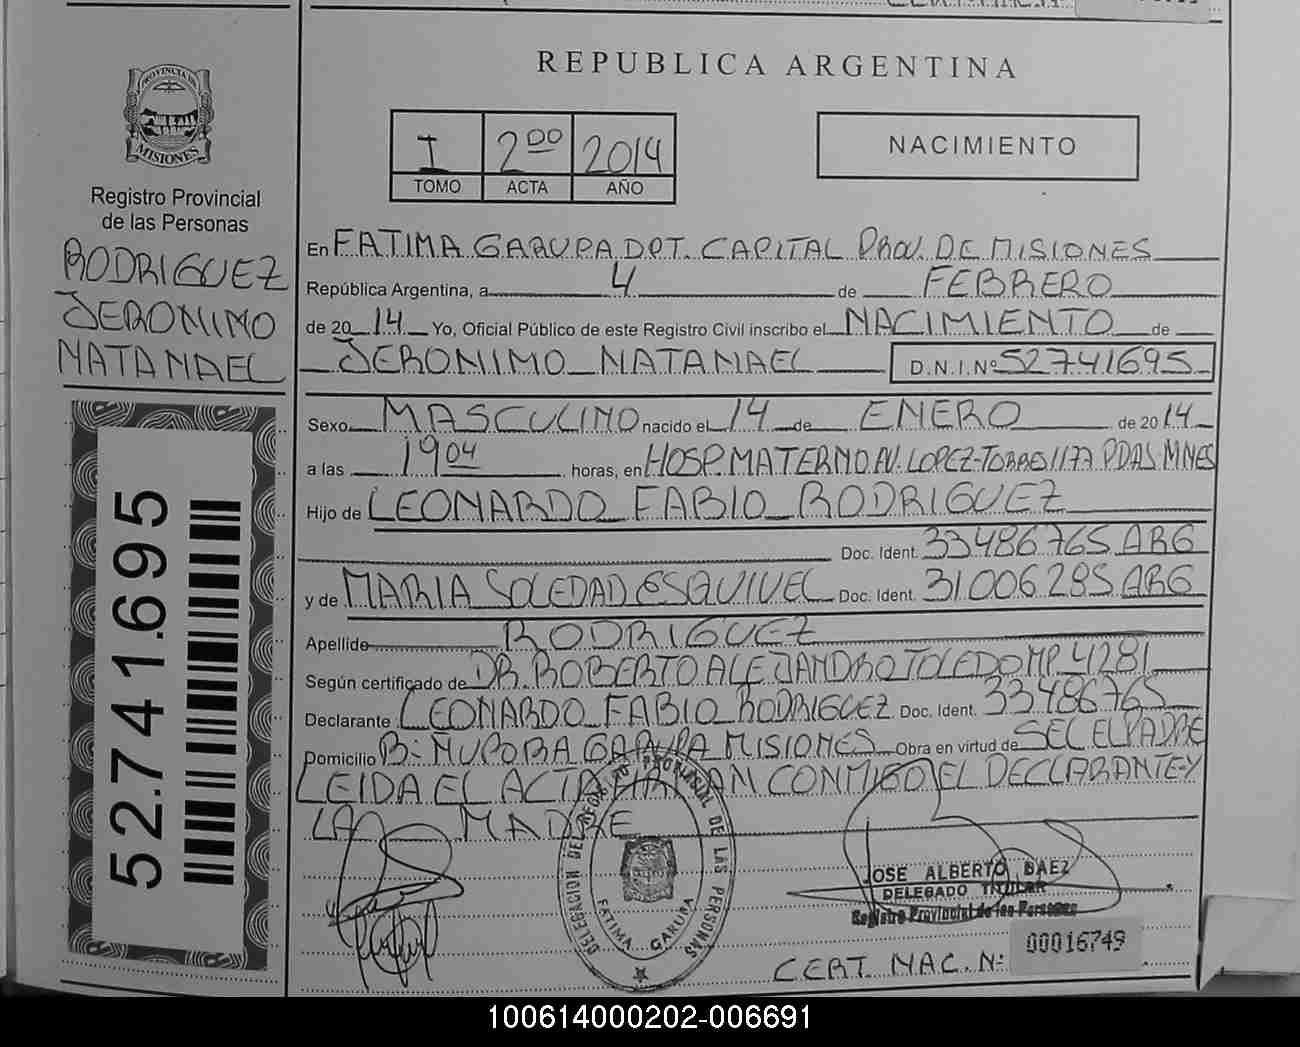 PROVINCIA DE
MISIONES
Registro Provincial
de las Personas
RODRIGUEZ
JERONIMO
NATANAEL
52.741.695
REPUBLICA ARGENTINA
I 200 2014
TOMO ACTA AÑO
NACIMIENTO
En FATIMA GARUPA DPT. CAPITAL PROV. DE MISIONES
República Argentina, a 4 de FEBRERO
de 2014 Yo, Oficial Público de este Registro Civil inscribo el NACIMIENTO de
JERONIMO NATANAEL D.N.I.Nº 52741695
Sexo MASCULINO nacido el 14 de ENERO de 2014
a las 1904 horas, en HOSP. MATERNO AV. LOPEZ-TORRES 1177 PDAS. MNES
Hijo de LEONARDO FABIO RODRIGUEZ
Doc. Ident. 33486765 ARG
y de MARIA SOLEDAD ESQUIVEL Doc. Ident. 31006285 ARG
Apellido RODRIGUEZ
Según certificado de DR. ROBERTO ALEJANDRO TOLEDO MP 4281
Declarante LEONARDO FABIO RODRIGUEZ Doc. Ident. 33486765
Domicilio B: ÑUPORA GARUPA MISIONES Obra en virtud de SEC EL PADRE
LEIDA EL ACTA FIRMAN CONMIGO EL DECLARANTE Y
LA MADRE
DELEGACION DEL REGISTRO PROVINCIAL DE LAS PERSONAS
FATIMA GARUPA
JOSE ALBERTO BAEZ
DELEGADO TITULAR
Registro Provincial de las Personas
CERT. NAC. N: 00016749
100614000202-006691